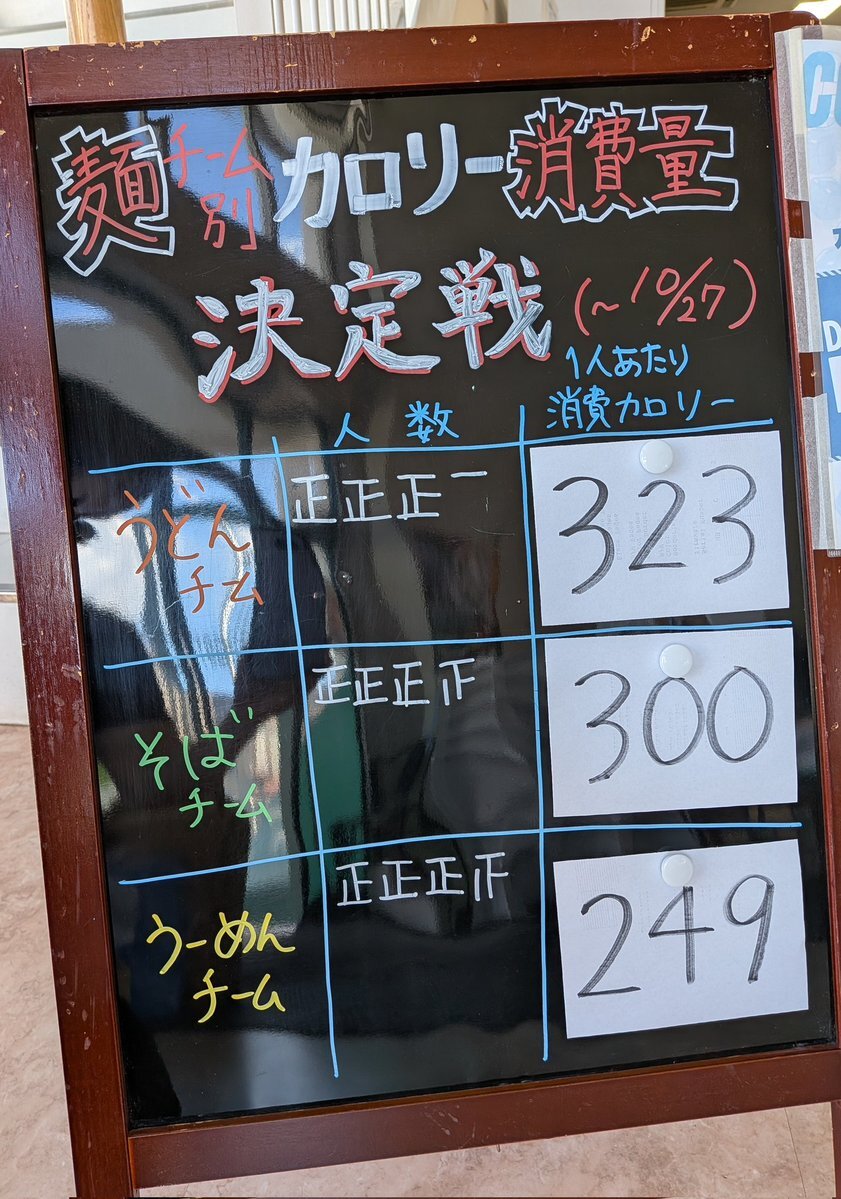 麺チーム別カロリー消費量
決定戦(~10/27)
人数
1人あたり
消費カロリー
うどん
チーム
正正正一
323
そば
チーム
正正正正
300
うーめん
チーム
正正正正
249